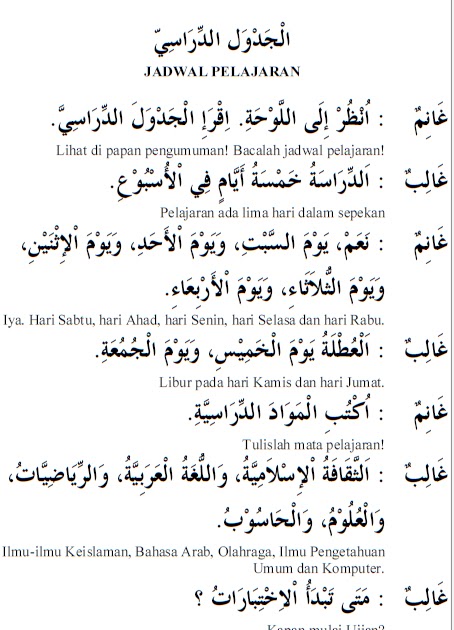 الْجَدْوَل الدِّرَاسِيّ
JADWAL PELAJARAN
غَانِمٌ : اُنْظُرْ إِلَى اللَّوْحَةِ. اِقْرَإِ الْجَدْوَلَ الدِّرَاسِيَّ.
Lihat di papan pengumuman! Bacalah jadwal pelajaran!
غَالِبٌ : اَلدِّرَاسَةُ خَمْسَةُ أَيَّامٍ فِي الْأُسْبُوْعِ.
Pelajaran ada lima hari dalam sepekan
غَانِمٌ : نَعَمْ، يَوْمَ السَّبْتِ، وَيَوْمَ الْأَحَدِ، وَيَوْمَ الْإِثْنَيْنِ،
وَيَوْمَ الثُّلَاثَاءِ، وَيَوْمَ الْأَرْبِعَاءِ.
Iya. Hari Sabtu, hari Ahad, hari Senin, hari Selasa dan hari Rabu.
غَالِبٌ : اَلْعُطْلَةُ يَوْمَ الْخَمِيْسِ، وَيَوْمَ الْجُمُعَةِ.
Libur pada hari Kamis dan hari Jumat.
غَانِمٌ : اُكْتُبِ الْمَوَادَ الدِّرَاسِيَّةِ.
Tulislah mata pelajaran!
غَالِبٌ : اَلثَّقَافَةُ الْإِسْلَامِيَّةُ، وَاللُّغَةُ الْعَرَبِيَّةُ، وَالرِّيَاضِيَّاتُ،
وَالْعُلُوْمُ، وَالْحَاسُوْبُ.
Ilmu-ilmu Keislaman, Bahasa Arab, Olahraga, Ilmu Pengetahuan
Umum dan Komputer.
غَالِبٌ : مَتَى تَبْدَأُ الْاِخْتِبَارَاتُ ؟
Kapan mulai Ujian?